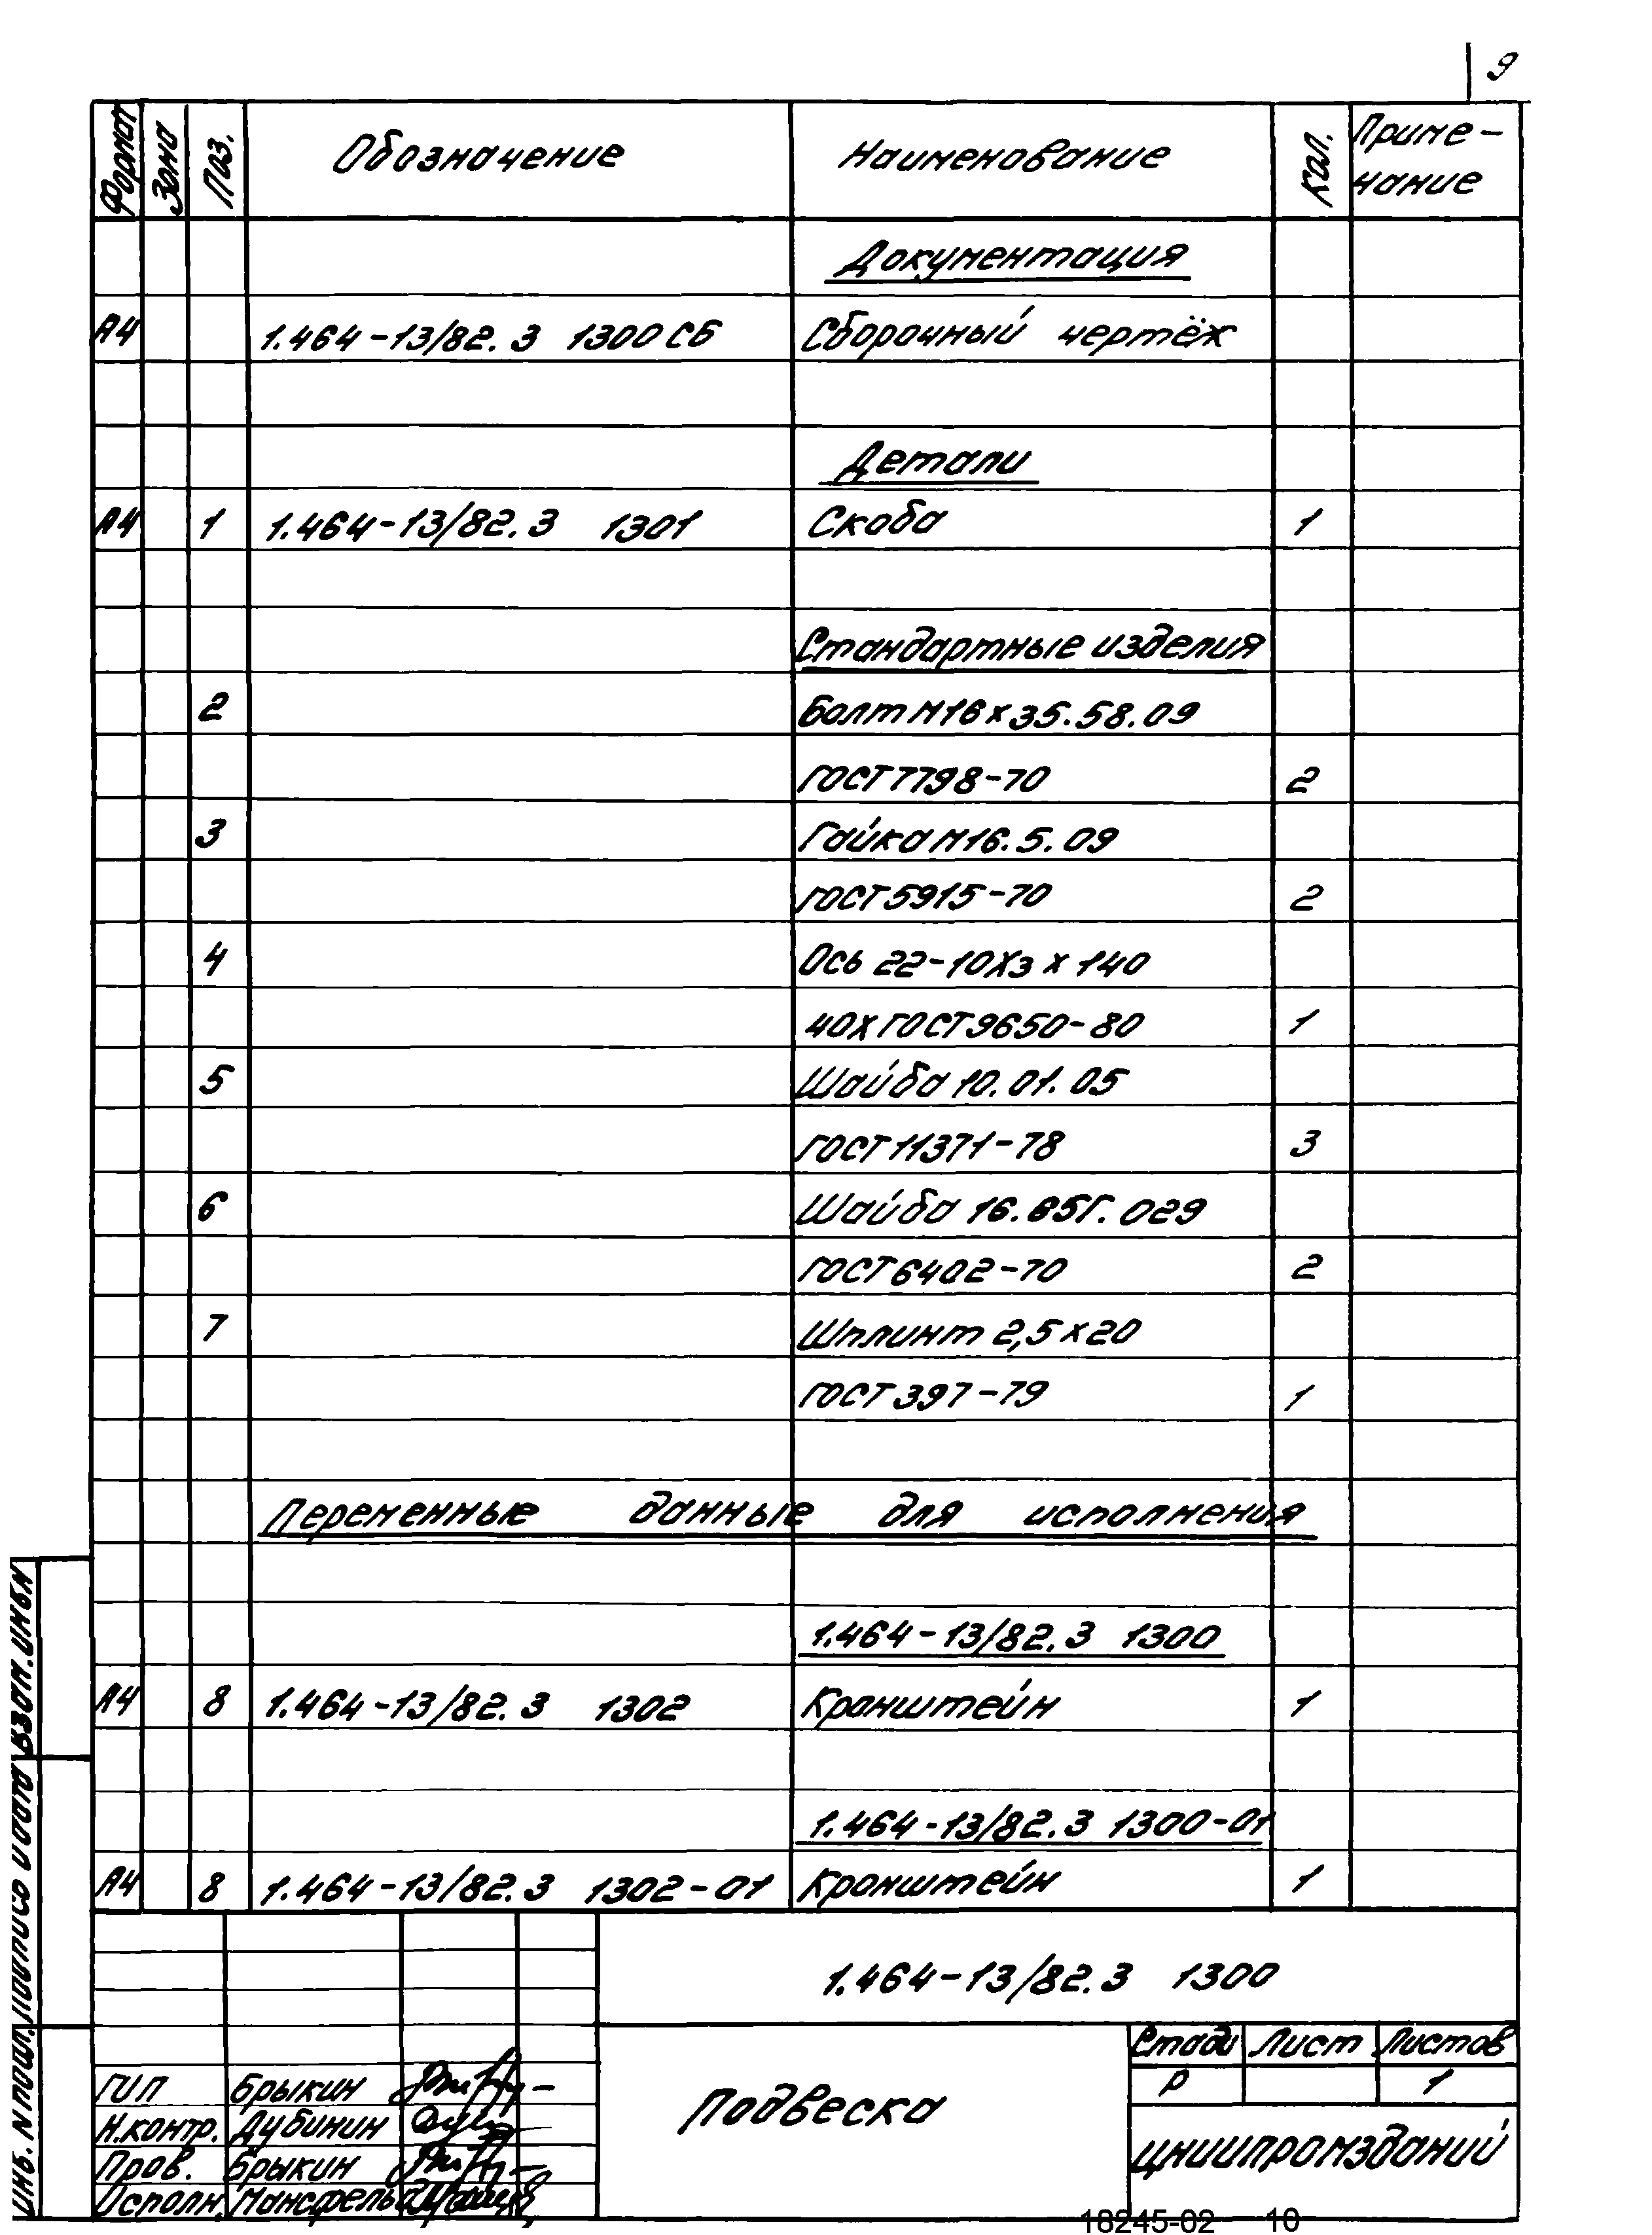 9
Формат Зона Поз. Обозначение Наименование Кол. Приме-
чание
Документация
А4 1.464-13/82.3 1300СБ Сборочный чертёж
Детали
А4 1 1.464-13/82.3 1301 Скоба 1
Стандартные изделия
2 Болт М16х35.58.09
ГОСТ 7798-70 2
3 Гайка М16.5.09
ГОСТ 5915-70 2
4 Ось 22-10Х3 х 140
40Х ГОСТ 9650-80 1
5 Шайба 10.01.05
ГОСТ 11371-78 3
6 Шайба 16.65Г.029
ГОСТ 6402-70 2
7 Шплинт 2,5х20
ГОСТ 397-79 1
Переменные данные для исполнения
1.464-13/82.3 1300
А4 8 1.464-13/82.3 1302 Кронштейн 1
1.464-13/82.3 1300-01
А4 8 1.464-13/82.3 1302-01 Кронштейн 1
Инв. N подл. Подпись и дата Взам. инв N
1.464-13/82.3 1300
Стади Лист Листов
Р 1
ГИП Брыкин
Н.контр. Дубинин
Пров. Брыкин
Исполн. Мансфельд
Подвеска
ЦНИИпромзданий
18245-02 10